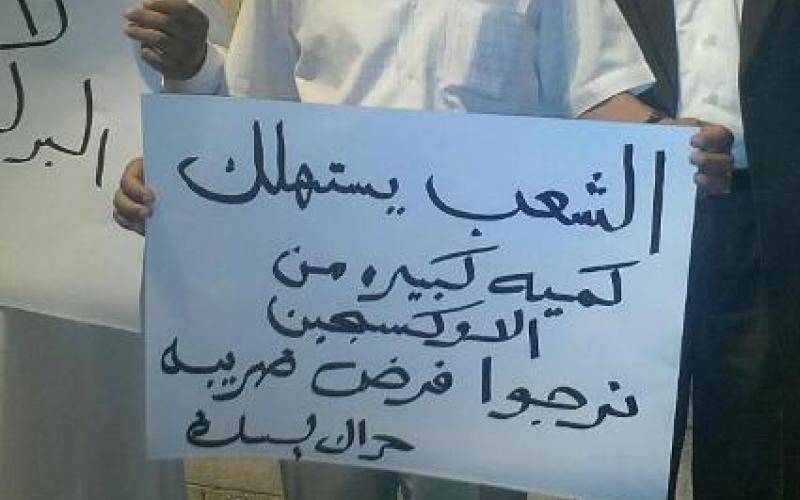 الشعب يستهلك
كميه كبيره من
الاوكسجين
نرجوا فرض ضريبه
حراك